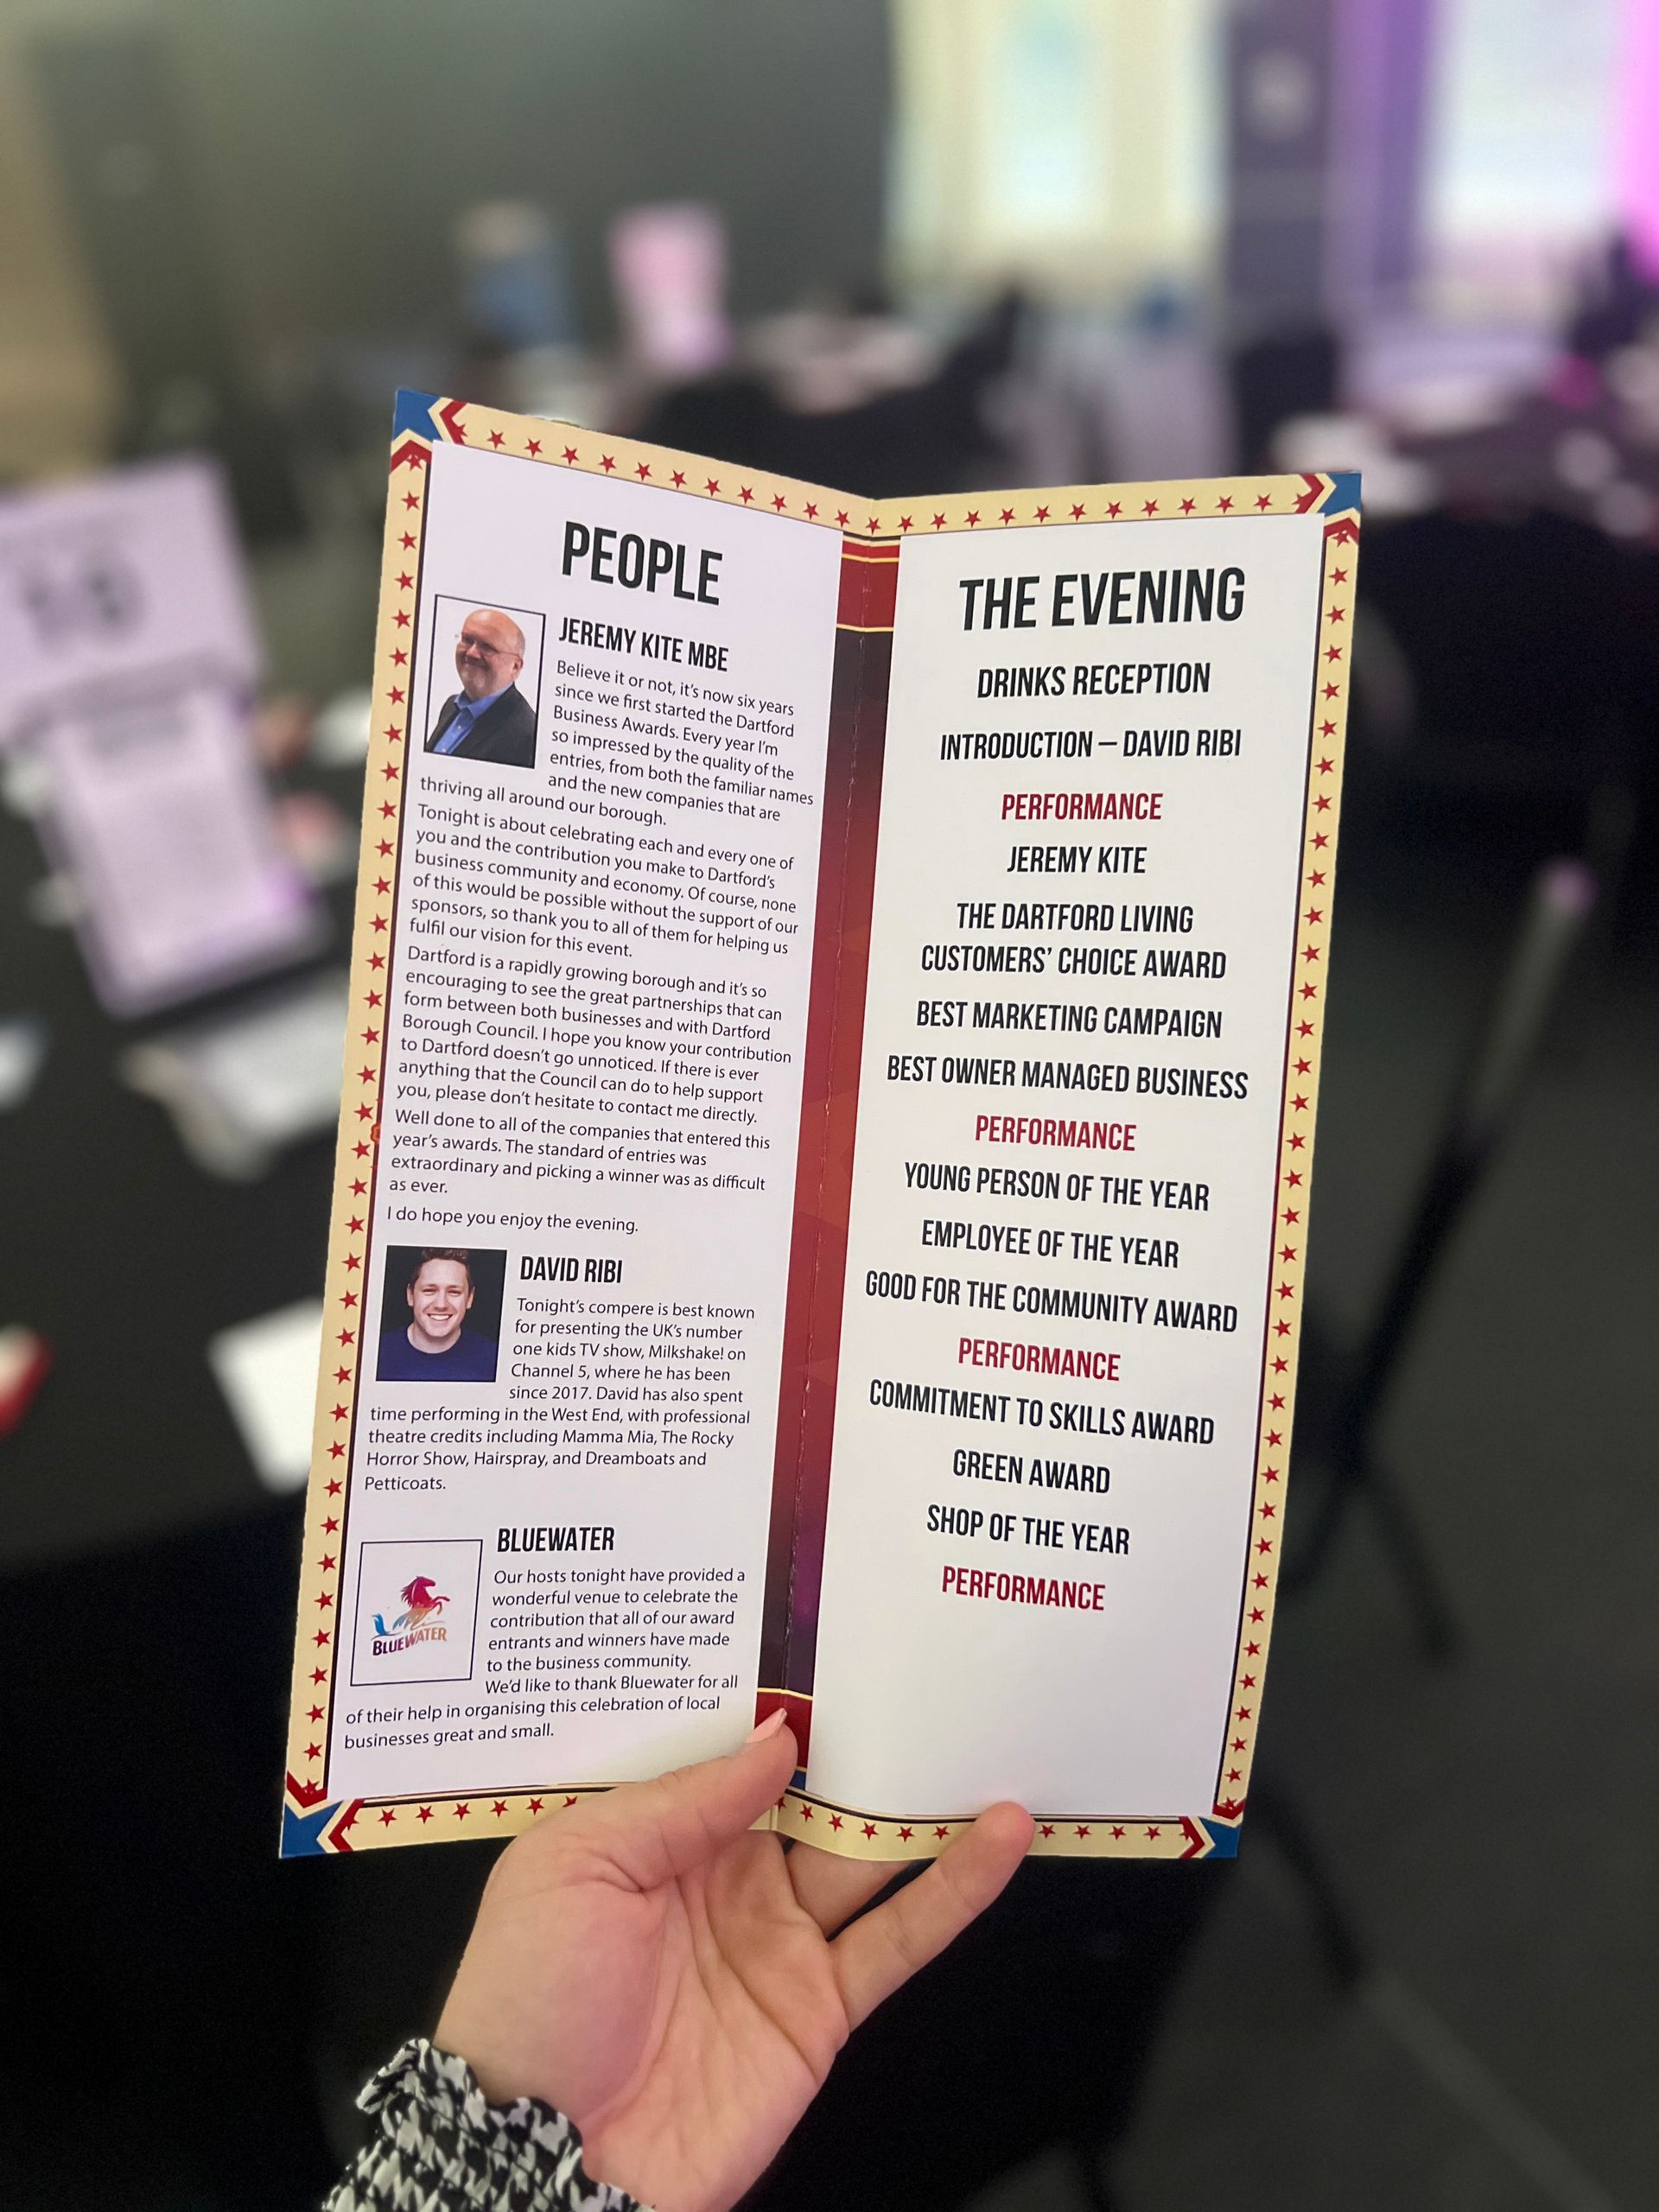 PEOPLE
JEREMY KITE MBE
Believe it or not, it's now six years
since we first started the Dartford
Business Awards. Every year I'm
so impressed by the quality of the
entries, from both the familiar names
and the new companies that are
thriving all around our borough.
Tonight is about celebrating each and every one of
you and the contribution you make to Dartford's
business community and economy. Of course, none
of this would be possible without the support of our
sponsors, so thank you to all of them for helping us
fulfil our vision for this event.
Dartford is a rapidly growing borough and it's so
encouraging to see the great partnerships that can
form between both businesses and with Dartford
Borough Council. I hope you know your contribution
to Dartford doesn't go unnoticed. If there is ever
anything that the Council can do to help support
you, please don't hesitate to contact me directly.
Well done to all of the companies that entered this
year's awards. The standard of entries was
extraordinary and picking a winner was as difficult
as ever.
I do hope you enjoy the evening.
DAVID RIBI
Tonight's compere is best known
for presenting the UK's number
one kids TV show, Milkshake! on
Channel 5, where he has been
since 2017. David has also spent
time performing in the West End, with professional
theatre credits including Mamma Mia, The Rocky
Horror Show, Hairspray, and Dreamboats and
Petticoats.
BLUEWATER
BLUEWATER
Our hosts tonight have provided a
wonderful venue to celebrate the
contribution that all of our award
entrants and winners have made
to the business community.
We'd like to thank Bluewater for all
of their help in organising this celebration of local
businesses great and small.
THE EVENING
DRINKS RECEPTION
INTRODUCTION – DAVID RIBI
PERFORMANCE
JEREMY KITE
THE DARTFORD LIVING
CUSTOMERS' CHOICE AWARD
BEST MARKETING CAMPAIGN
BEST OWNER MANAGED BUSINESS
PERFORMANCE
YOUNG PERSON OF THE YEAR
EMPLOYEE OF THE YEAR
GOOD FOR THE COMMUNITY AWARD
PERFORMANCE
COMMITMENT TO SKILLS AWARD
GREEN AWARD
SHOP OF THE YEAR
PERFORMANCE